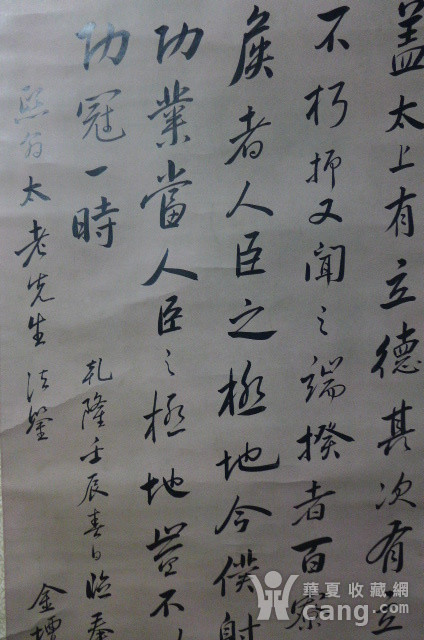 蓋太上有立德其次有立
不朽抑又聞之端揆者百寮
侯者人臣之極地今僕射
功業當人臣之極地豈不
功冠一時
乾隆壬辰春日臨奉
熙翁太老先生法鑒
金壇
華夏收藏網
Cang.com